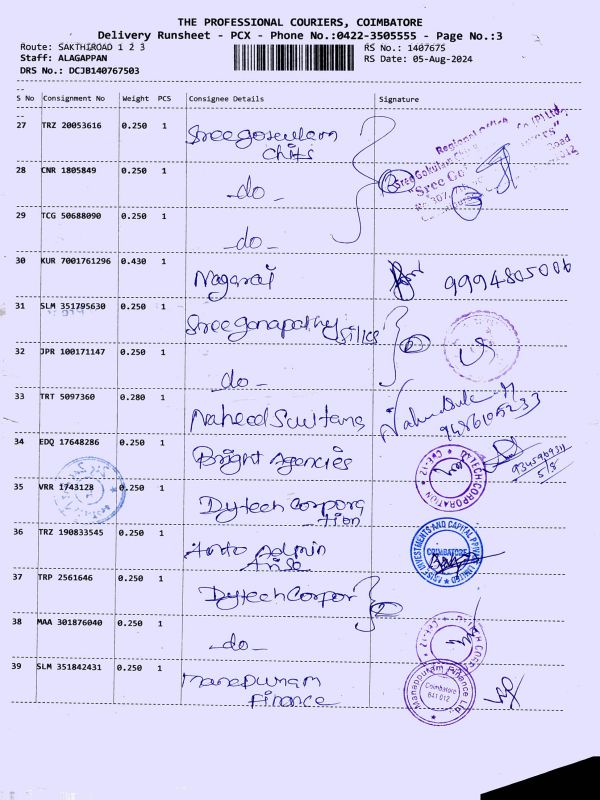 THE PROFESSIONAL COURIERS, COIMBATORE
Delivery Runsheet - PCX - Phone No.:0422-3505555 - Page No.:3
Route: SAKTHIROAD 1 2 3
RS No.: 1407675
Staff: ALAGAPPAN
RS Date: 05-Aug-2024
DRS No.: DCJB140767503
S No Consignment No Weight PCS Consignee Details Signature
27 TRZ 20053616 0.250 1 Sree gosulam
chits
Regional Office
Sree Gokulam
28 CNR 1805849 0.250 1 -do-
29 TCG 50688090 0.250 1 -do-
30 KUR 7001761296 0.430 1 Nagaraj 9994805006
31 SLM 351795630 0.250 1 Sree ganapathy silks
32 JPR 100171147 0.250 1 -do-
33 TRT 5097360 0.280 1 Naheed Sultana
34 EDQ 17648286 0.250 1 Bright Agencies
35 VRR 1743128 0.250 1 Dytech Corpora
-tion
DYTECH CORPORATION
CBE-12
5/8
36 TRZ 190833545 0.250 1 Admin
INVESTMENTS AND CAPITAL
COIMBATORE
37 TRP 2561646 0.250 1 Dytech Corpor
38 MAA 301876040 0.250 1 -do-
39 SLM 351842431 0.250 1 Manapuram
Finance
Manappuram Finance Ltd
Coimbatore
641 012